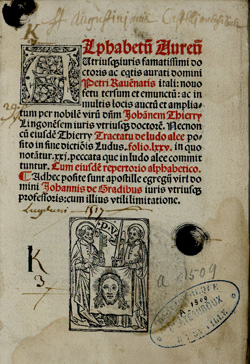 K
S. Augustini
Alphabetū Aureū
Utriusq; iuris famatissimi do
ctoris ac eq̄tis aurati domini
Petri Rauēnatis itali: nouo
fetu tersum et emunctū: ac in
multis locis auctū et amplia
tum per nobilē virū dn̄m Johānem Thierry
Lingonēsem iuris vtriusq; doctorē. Necnon
cū eiusdē Thierry Tractatu de ludo alee posi-
to in fine dictiōis Ludus. folio. lxxv. in quo
notātur. xxj. peccata que in ludo alee commit
tuntur. Cum eiusdē repertorio alphabetico.
Adhec posite sunt apostille egregij viri do
mini Johannis de Gradibus iuris vtriusq;
professoris: cum illius vtili limitatione.
Lugduni 1517
K
3
D.V.
a 1509